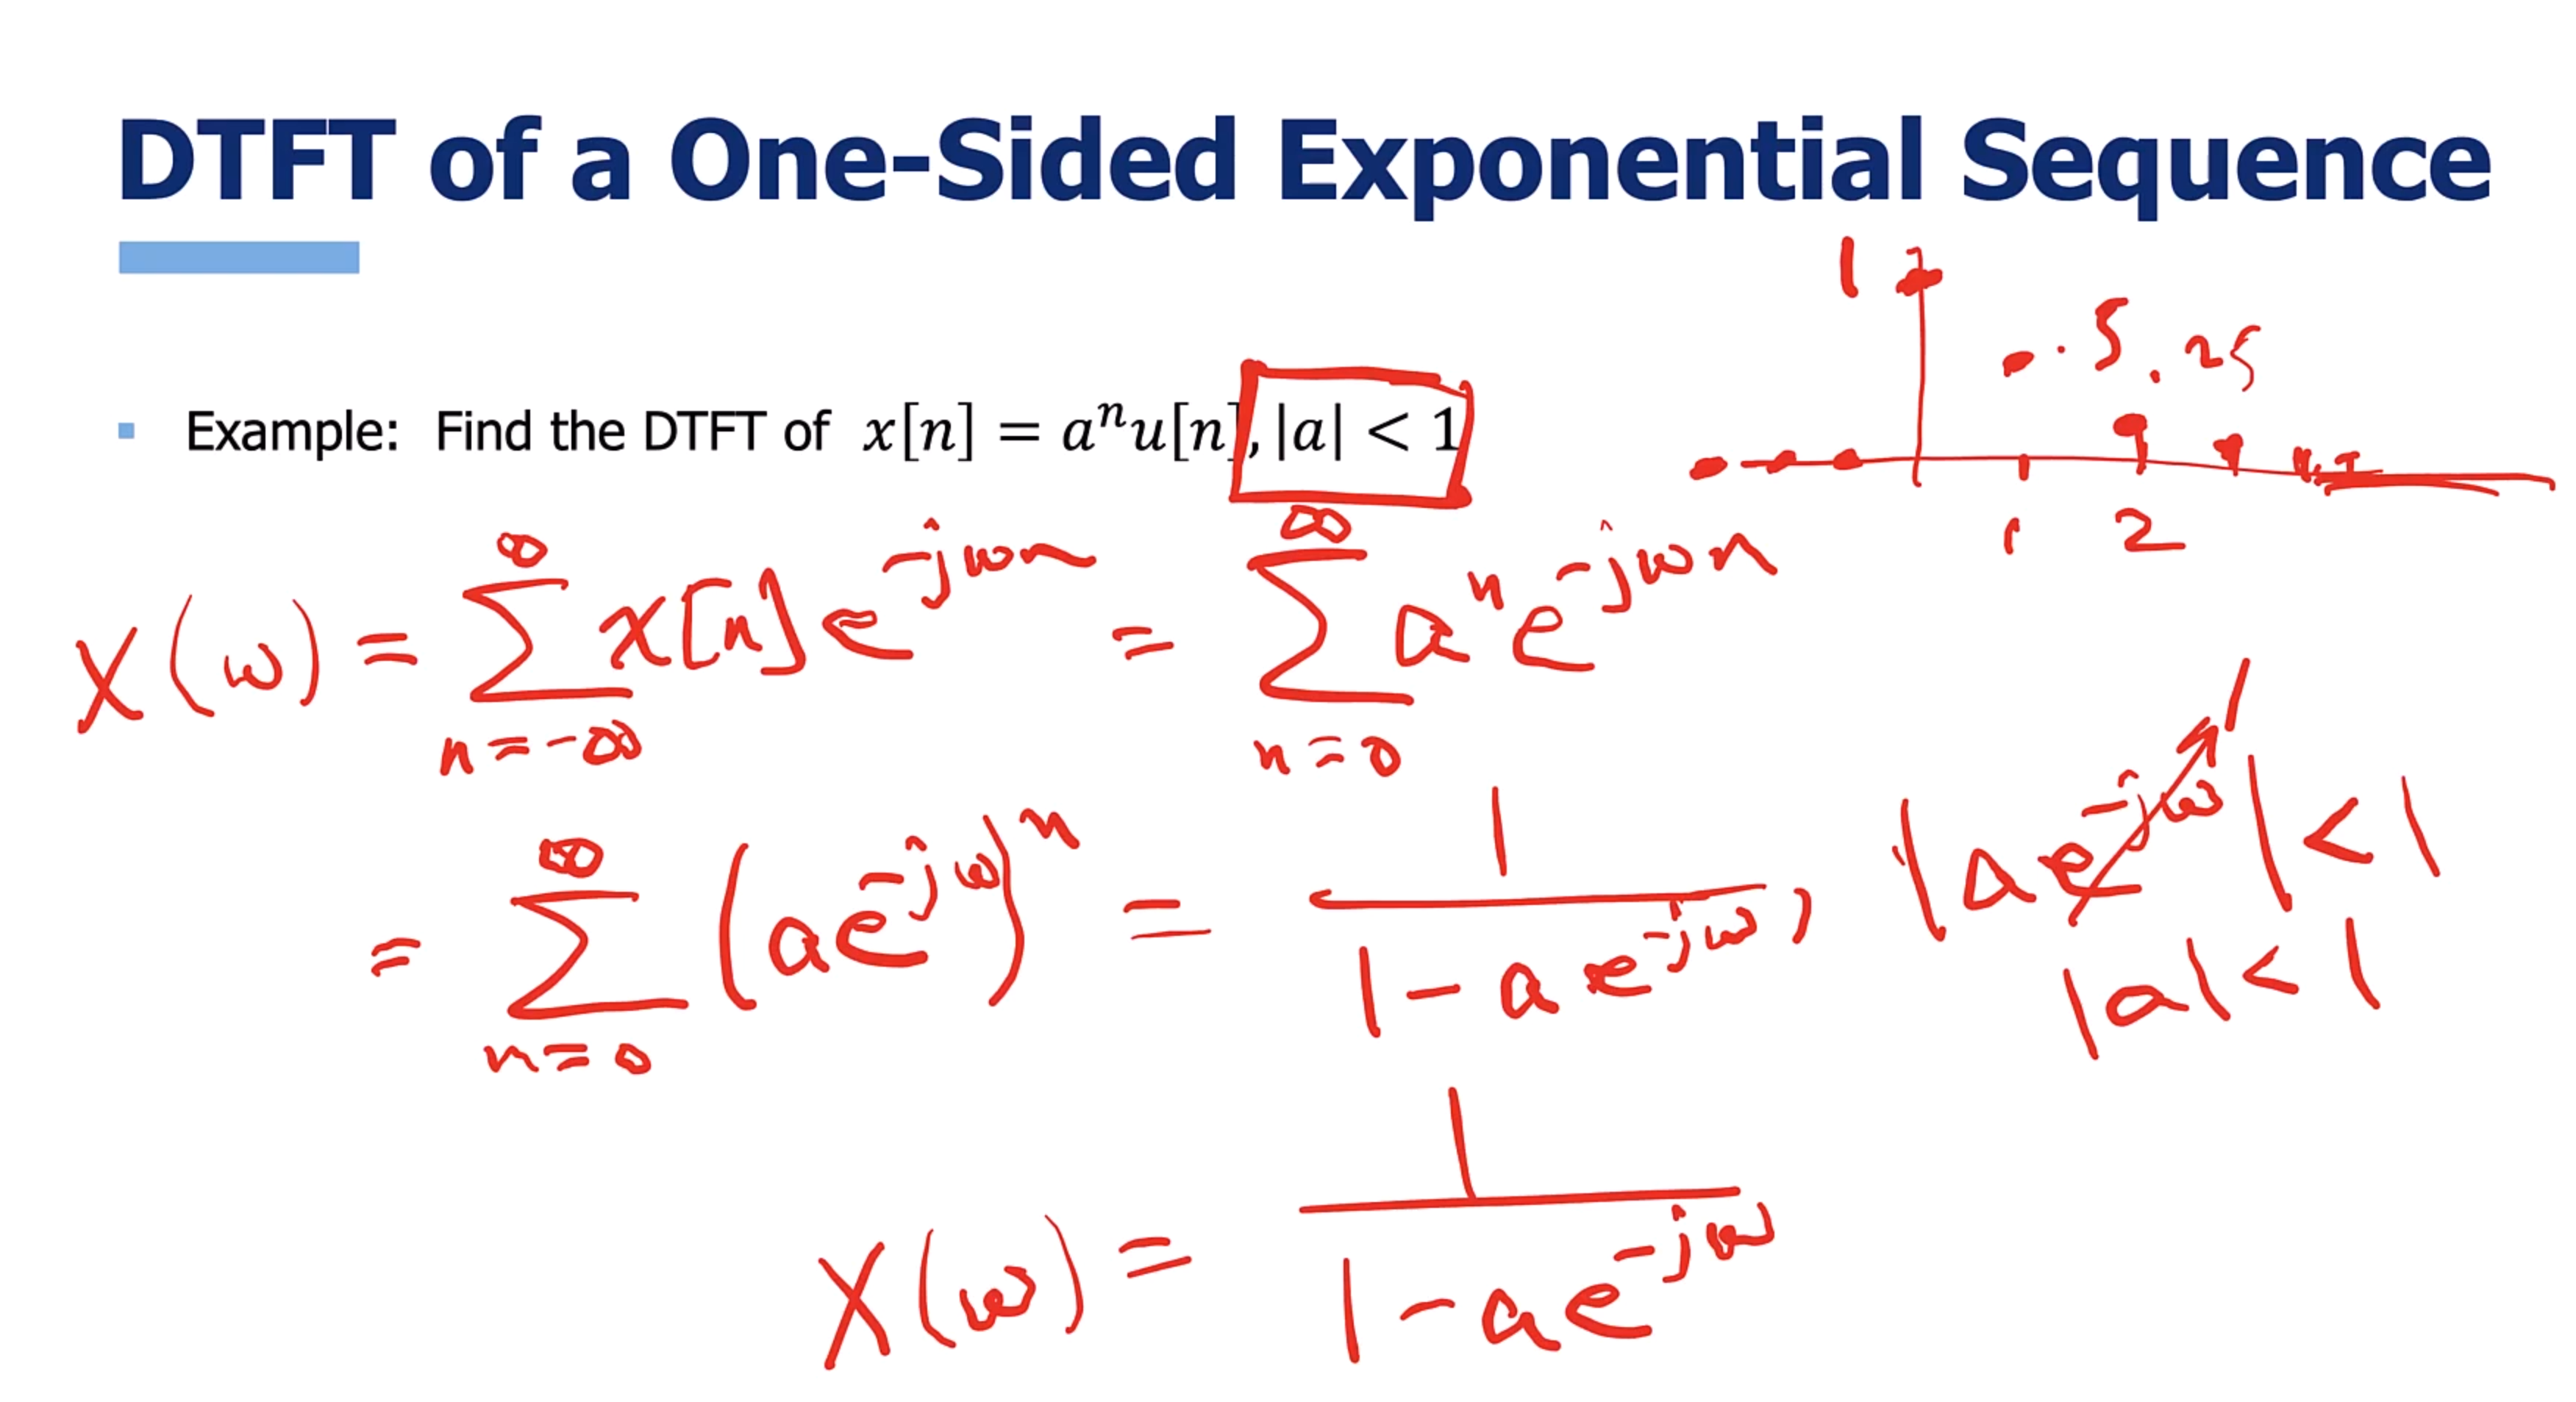 DTFT of a One-Sided Exponential Sequence
1
.5 .25
Example: Find the DTFT of x[n] = aⁿu[n], |a| < 1
1 2
X(ω) = ∑_{n=-∞}^{∞} x[n] e^{-jωn} = ∑_{n=0}^{∞} aⁿ e^{-jωn}
1
= ∑_{n=0}^{∞} (ae^{-jω})ⁿ = 1 / (1 - ae^{-jω}), |ae^{-jω}| < 1
|a| < 1
X(ω) = 1 / (1 - ae^{-jω})